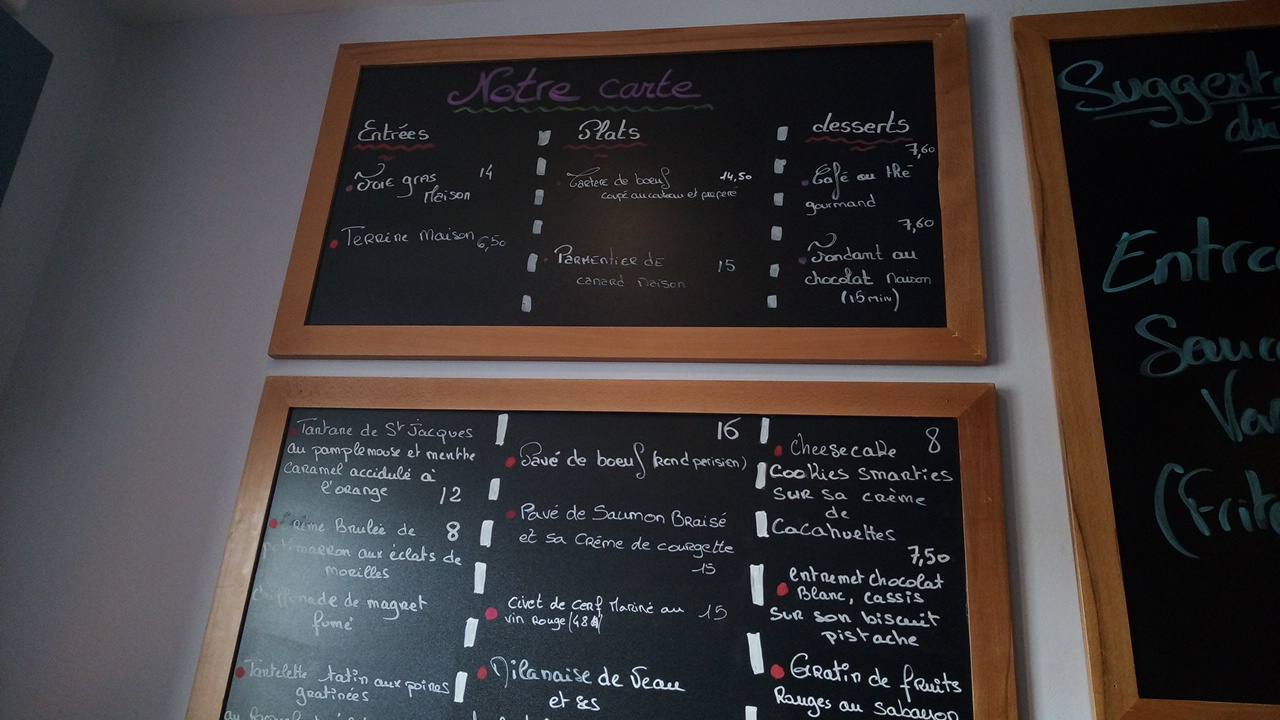 Notre carte
Entrées
Foie gras 14
Maison
Terrine Maison 6,50
Plats
Tartare de boeuf 14,50
coupé au couteau et préparé
Parmentier de 15
canard Maison
desserts
7,60
Café ou thé
gourmand
7,60
Fondant au
chocolat Maison
(15 min)
Tartare de St Jacques
au pamplemouse et menthe
caramel accidulé à
l'orange 12
Crème Brulée de 8
potimarron aux éclats de
morilles
chiffonade de magret
fumé
Tartelette tatin aux poires
gratinées
16
Pavé de boeuf (rond perisien)
Pavé de Saumon Braisé
et sa Crème de courgette
15
Civet de cerf Mariné au 15
vin Rouge (48h)
Milanaise de Veau
et ses
Cheesecake 8
Cookies Smarties
sur sa crème
de
Cacahuettes
7,50
entremet chocolat
Blanc, cassis
sur son biscuit
pistache
Gratin de fruits
Rouges au sabayon
Suggest
du
Entre
Sauc
(Frit